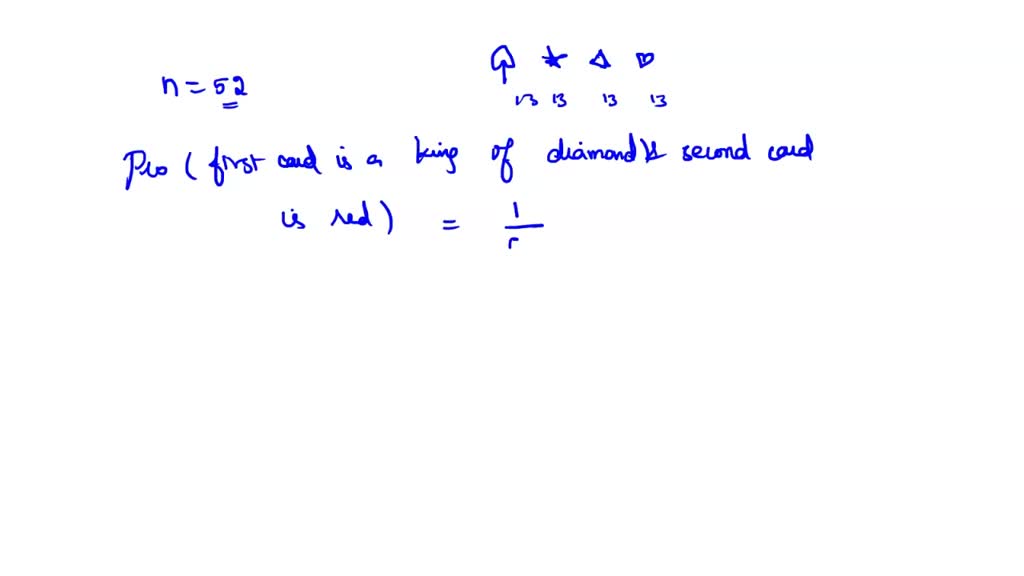 n = 52
13 13 13 13
Pro ( first card is a king of diamond & second card
is red ) = 1/5